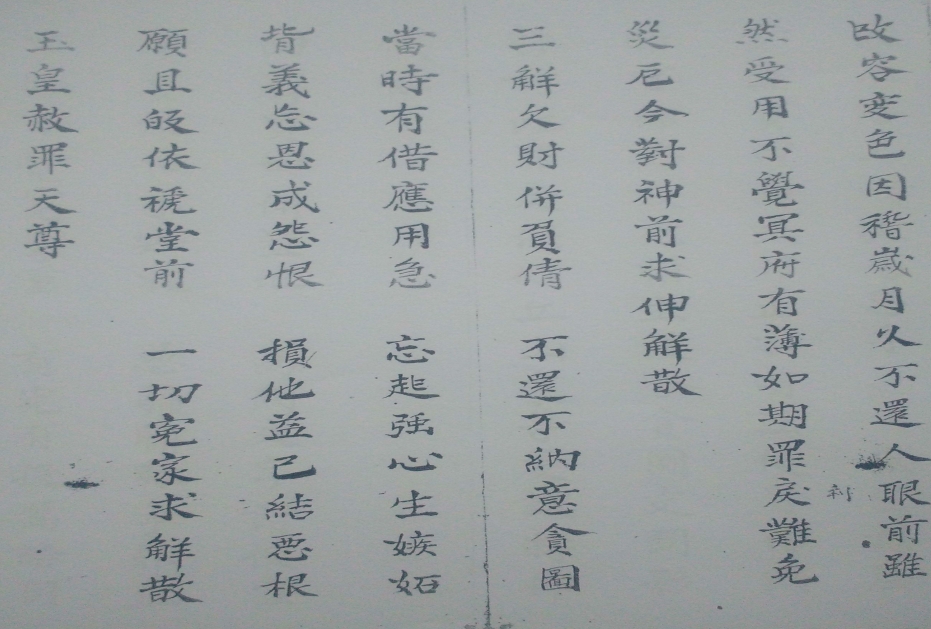 改容变色因稽歲月久不還人眼前雖
利
然受用不覺冥府有薄如期罪戾難免
災厄今對神前求伸解散
三解欠財併負債　不還不納意貪圖
當時有借應用急　忘起强心生嫉妬
背義忘恩成怨恨　損他益己結惡根
願且皈依 堂前　一切冤家求解散
玉皇赦罪天尊